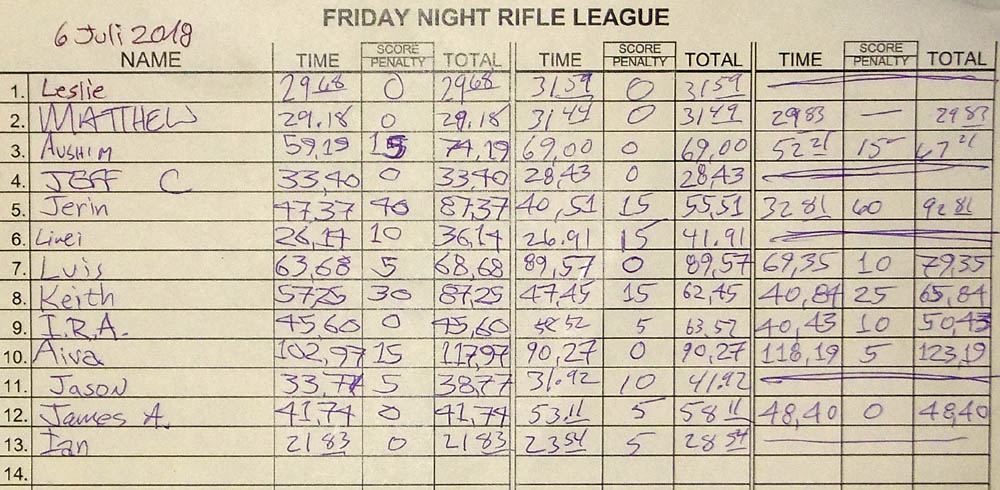 FRIDAY NIGHT RIFLE LEAGUE
6 Juli 2018
NAME TIME SCORE PENALTY TOTAL TIME SCORE PENALTY TOTAL TIME SCORE PENALTY TOTAL
1. Leslie 29 68 0 29 68 31 59 0 31 59
2. MATTHEW 29.18 0 29.18 31 49 0 31 49 29 83 — 29 83
3. AUSHIM 59,19 15 74,19 69,00 0 69,00 52 21 15 67 21
4. JEFF C 33,40 0 33,40 28,43 0 28,43
5. Jerin 47,37 40 87,37 40,51 15 55,51 32 81 60 92 81
6. Linei 26,14 10 36,14 26.91 15 41.91
7. Luis 63,68 5 68,68 89,57 0 89,57 69,35 10 79,35
8. Keith 57,25 30 87,25 47,45 15 62,45 40,84 25 65,84
9. I.R.A. 45,60 0 45,60 58 52 5 63.52 40,43 10 50,43
10. Aiva 102,97 15 117,97 90,27 0 90,27 118,19 5 123,19
11. JASON 33,77 5 38,77 31.92 10 41.92
12. James A. 41,74 0 41,74 53 11 5 58 11 48,40 0 48,40
13. Ian 21 83 0 21 83 23 54 5 28 54
14.